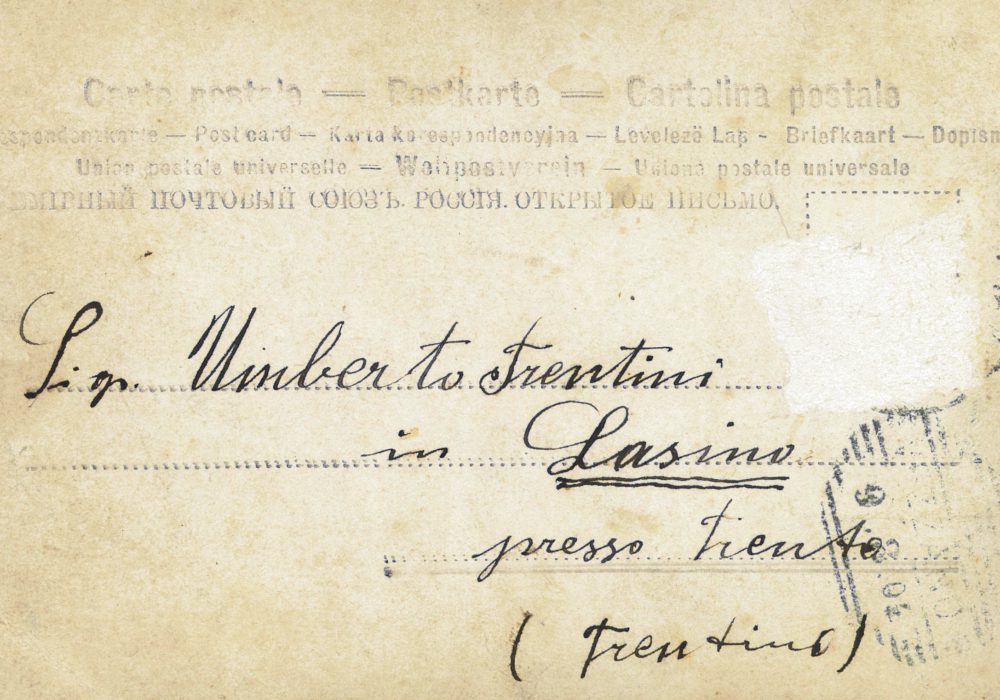 Carte postale — Postkarte — Cartolina postale
espondenzkarte — Post card — Karta korespondencyjna — Levelező Lap - Briefkaart — Dopisn
Union postale universelle — Weltpostverein — Unione postale universale
МІРНЫЙ ПОЧТОВЫЙ СОЮЗЪ. РОССІЯ. ОТКРЫТОЕ ПИСЬМО.
Sig. Umberto Trentini
in Lasino
presso Trento
(Trentino)